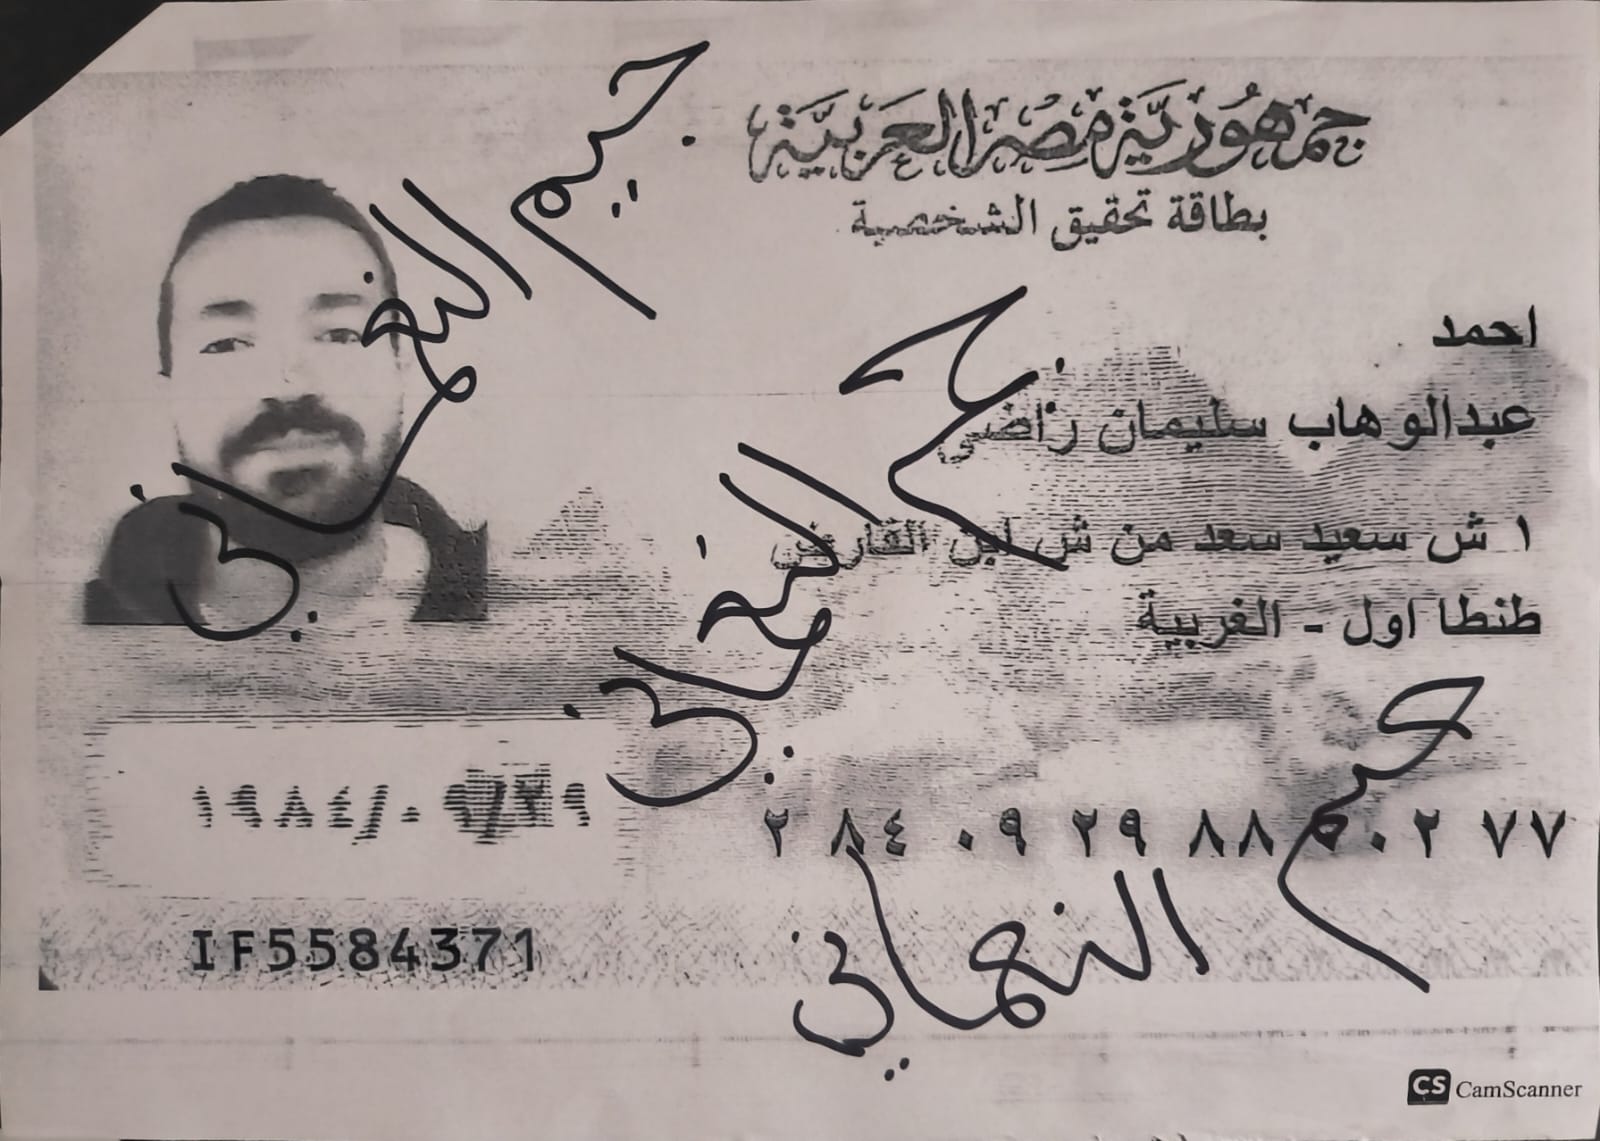 جمهورية مصر العربية
بطاقة تحقيق الشخصية
احمد
عبدالوهاب سليمان راضى
١ ش سعيد سعد من ش ابن الفارض
طنطا اول - الغربية
٢ ٨٤ ٠٩ ٢٩ ٨٨ ٠٢ ٧٧
١٩٨٤/٠٩/٢٩
IF5584371
النعماني
النعماني
النعماني
CS CamScanner